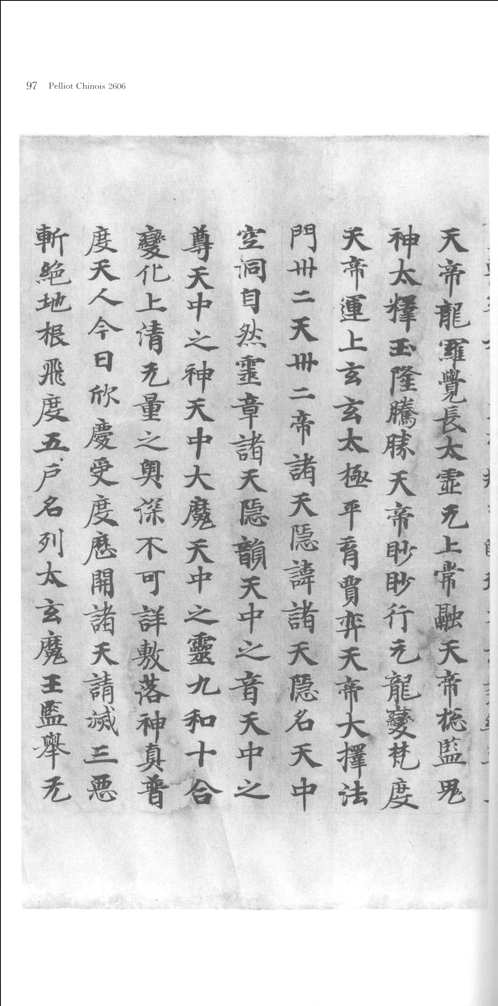 97 Pelliot Chinois 2606
天帝龍羅覺長太霊无上常融天帝㧾監鬼
神太釋玉隆騰勝天帝眇眇行元龍變梵度
天帝運上玄玄太極平育賈弈天帝大擇法
門卅二天卅二帝諸天隱諱諸天隱名天中
空洞自然靈章諸天隱韻天中之音天中之
尊天中之神天中大魔天中之靈九和十合
變化上清无量之奧深不可詳敷落神真普
度天人今日欣慶受度歷開諸天請滅三惡
斬絶地根飛度五戶名列太玄魔王監舉无